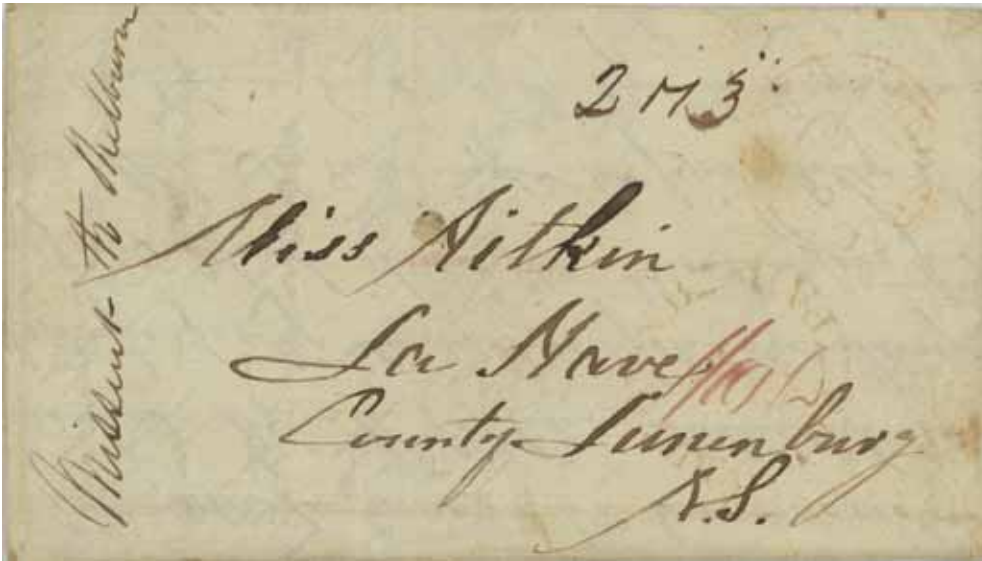 Missent to Shelburne
2 N 3
Miss Aitkin
La Have
County Lunenburg
N.S.